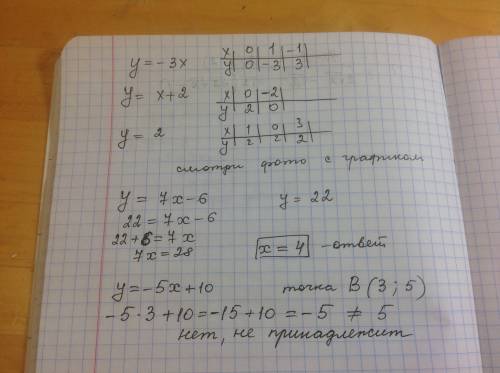 y = -3x   x | 0 | 1 | -1
y | 0 | -3 | 3
y = x+2   x | 0 | -2
y | 2 | 0
y = 2   x | 1 | 0 | 3
y | 2 | 2 | 2
смотри фото с графиком
y = 7x-6   y = 22
22 = 7x-6
22+6=7x
7x=28   x = 4 - ответ
y=-5x+10   точка B (3; 5)
-5·3+10=-15+10 = -5 ≠ 5
нет, не принадлежит